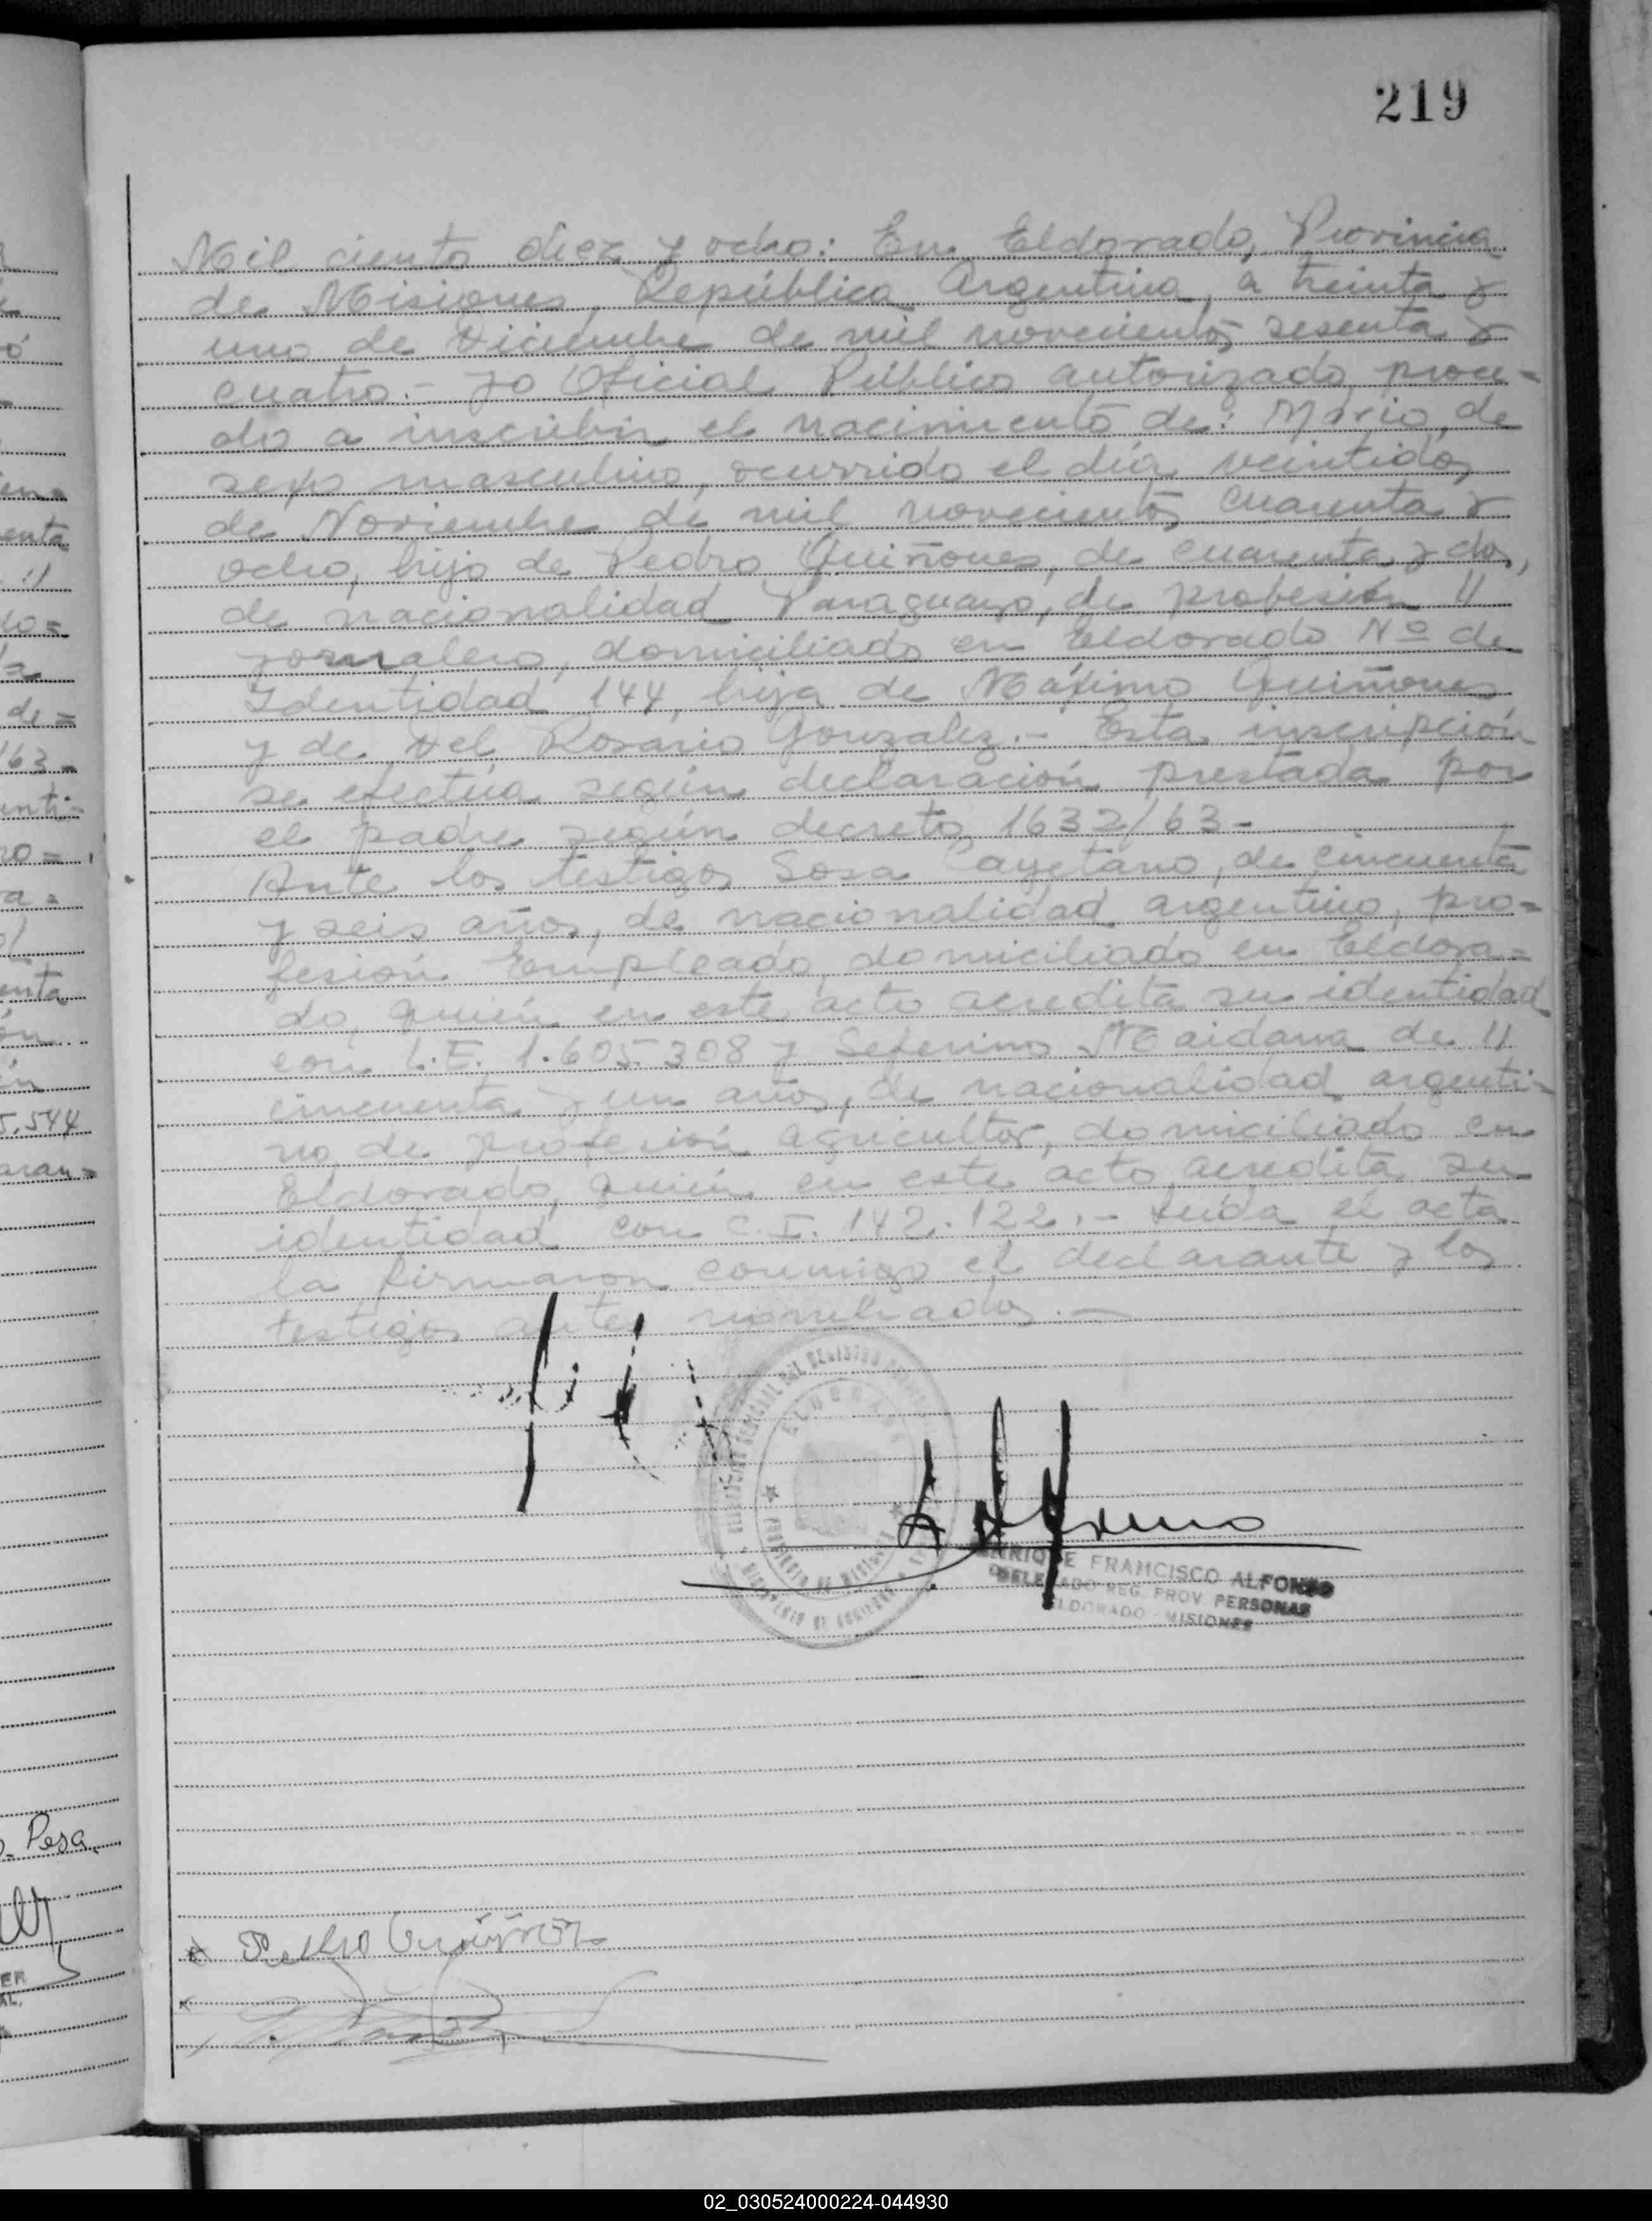 219
Mil ciento diez y ocho: En Eldorado, Provincia
de Misiones, República Argentina, a treinta y
uno de Diciembre de mil novecientos sesenta y
cuatro.- yo Oficial Público autorizado, proce-
do a inscribir el nacimiento de: Mario, de
sexo masculino, ocurrido el día veintidos,
de Noviembre de mil novecientos cuarenta y
ocho, hijo de Pedro Quiñones, de cuarenta y dos,
de nacionalidad Paraguayo, de profesión "
jornalero, domiciliado en Eldorado Nº de
Identidad 144, hija de Máximo Quiñones
y de Del Rosario Gonzalez.- Esta inscripción
se efectúa según declaración prestada por
el padre según decreto 1632/63-
Ante los testigos Sosa Cayetano, de cincuenta
y seis años, de nacionalidad argentino, pro=
fesión Empleado, domiciliado en Eldora=
do, quién en este acto acredita su identidad
con L.E. 1.605.308 y Seferino Maidana de "
cincuenta y un años, de nacionalidad argenti-
no, de profesión agricultor, domiciliado en
Eldorado, quién en este acto acredita su
identidad con C.I. 142.122.- Leída el acta
la firmaron conmigo el declarante y los
testigos antes nombrados.-
ELDORADO
PROVINCIA DE MISIONES
ENRIQUE FRANCISCO ALFONSO
DELEGADO REG. PROV PERSONAS
ELDORADO MISIONES
Pedro Quiñones
enta
de =
163-
5.544
Pesa
02_030524000224-044930